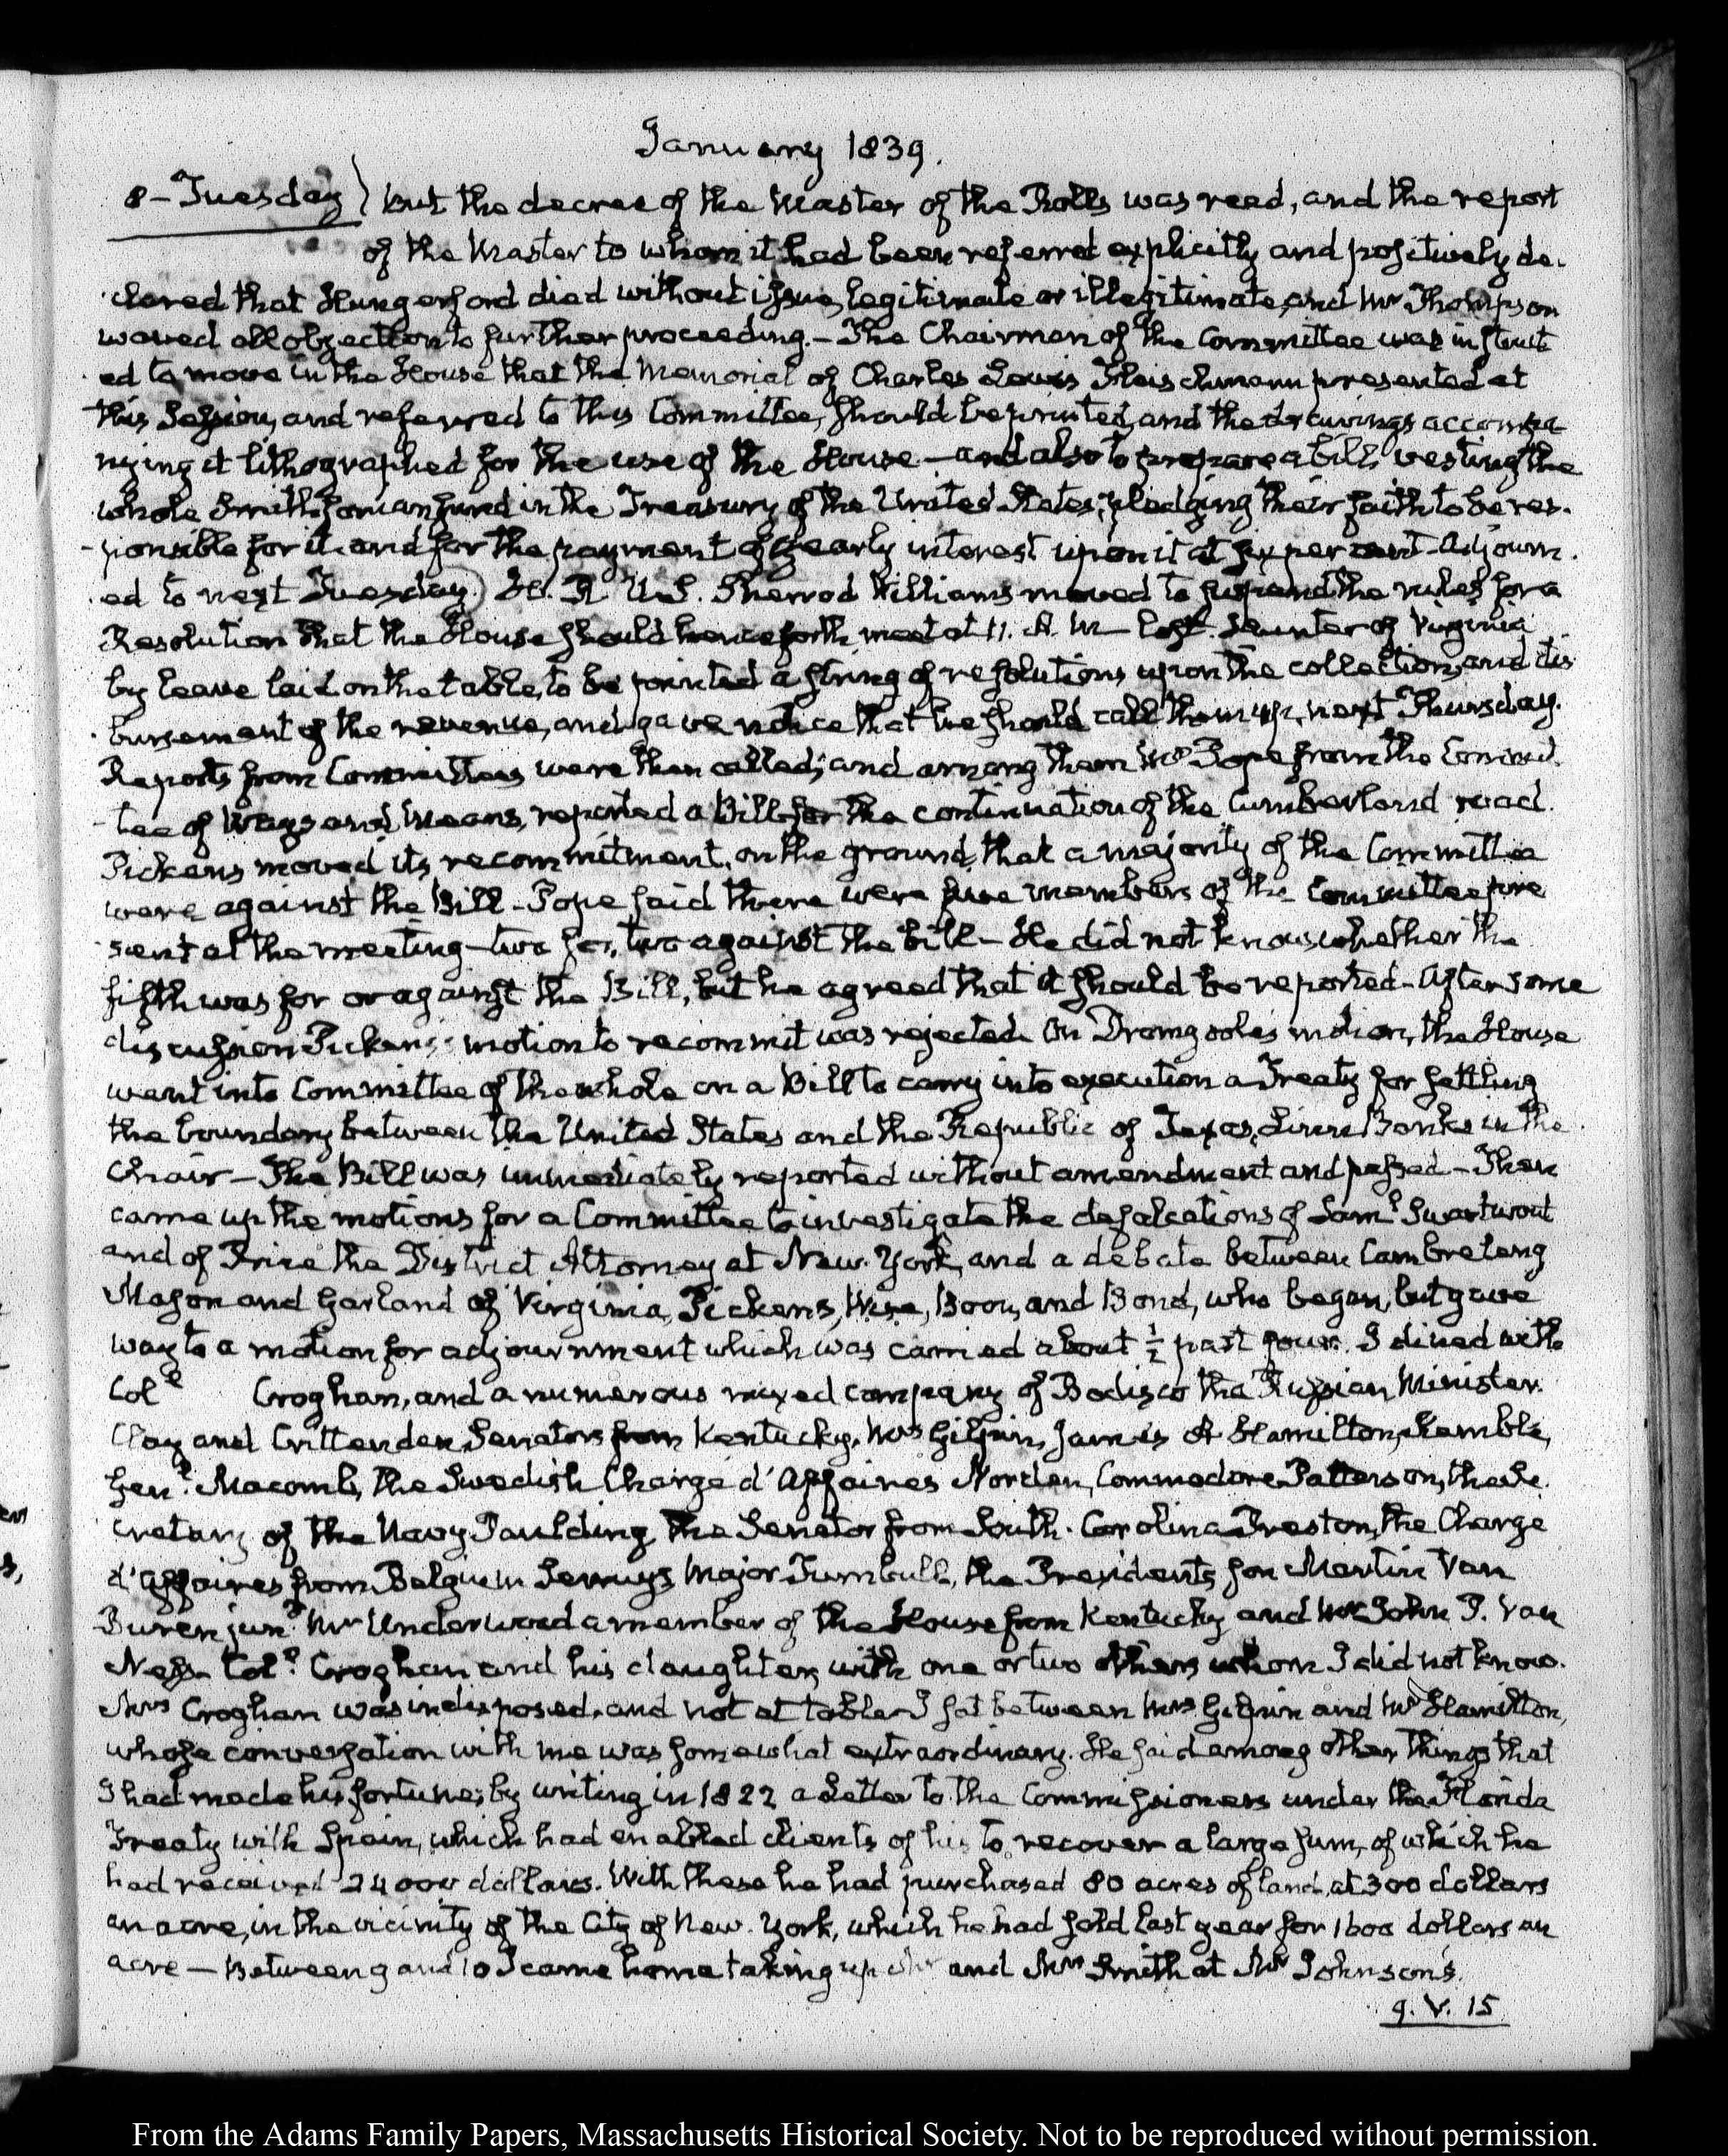 January 1839.
8 – Tuesday) but the decree of the Master of the Rolls was read, and the report
of the Master to whom it had been referred explicitly and positively de-
clared that Hungerford died without issue, legitimate or illegitimate, and Mr Thompson
waved all objection to further proceeding. – The Chairman of the Committee was instruct
ed to move in the House that the Memorial of Charles Lewis Fleischmann presented at
this Session, and referred to this Committee, should be printed, and the drawings accompa
nying it lithographed for the use of the House – and also to prepare a bill vesting the
whole Smithsonian fund in the Treasury of the United States; pledging their faith to be res-
ponsible for it and for the payment of yearly interest upon it at six per cent – Adjourn-
ed to next Tuesday.) H. R. U.S. Sherrod Williams moved to suspend the rules for a
Resolution that the House should henceforth meet at 11. A. M – lost. Hunter of Virginia
by leave laid on the table, to be printed a string of resolutions upon the collection, and dis
bursement of the revenue, and gave notice that he should call them up, next Thursday.
Reports from Committees were then called; and among them Mr Pope from the Commit-
tee of Ways and Means, reported a Bill for the continuation of the Cumberland road.
Pickens moved its recommitment, on the ground that a majority of the Committee
were against the Bill – Pope said there were five members of the Committee pre
sent at the meeting – two for, two against the bill – He did not know whether the
fifth was for or against the Bill, but he agreed that it should be reported – After some
discussion Pickens's motion to recommit was rejected. On Dromgoole's motion, the House
went into Committee of the whole on a Bill to carry into execution a Treaty for settling
the boundary between the United States and the Republic of Texas, Linn Banks in the
Chair – The Bill was immediately reported without amendment and passed – Then
came up the motions for a Committee to investigate the defalcations of Saml Swartwout
and of Price the District Attorney at New-York, and a debate between Cambreleng
Mason and Garland of Virginia, Pickens, Wise, Boon, and Bond, who began, but gave
way to a motion for adjournment which was carried about ½ past four. I dined with
Coll Croghan, and a numerous mixed company of Bodisco the Russian Minister
Clay and Crittenden, Senators from Kentucky, Mrs Gilpin, James A Hamilton, Kemble,
Genl Macomb, the Swedish Chargé d'Affaires Nordin, Commodore Patterson, the Se-
cretary of the Navy Paulding, the Senator from South-Carolina Preston, the Chargé
d'affaires from Belgium Serruys Major Turnbull, the President's son Martin Van
Buren junr Mr Underwood a member of the House from Kentucky and Mr John P. Van
Ness. Coll Croghan and his daughter, with one or two others whom I did not know.
Mrs Croghan was indisposed, and not at table – I sat between Mrs Gilpin and Mr Hamilton,
whose conversation with me was somewhat extraordinary. He said among other things that
I had made his fortune; by writing in 1822 a Letter to the Commissioners under the Florida
Treaty with Spain, which had enabled clients of his to recover a large sum, of which he
had received 24000 dollars. With these he had purchased 80 acres of land, at 300 dollars
an acre, in the vicinity of the City of New-York, which he had sold last year for 1600 dollars an
acre – Between 9 and 10 I came home taking up Mr and Mrs Smith at Mr Johnson's.
q. V. 15
From the Adams Family Papers, Massachusetts Historical Society. Not to be reproduced without permission.